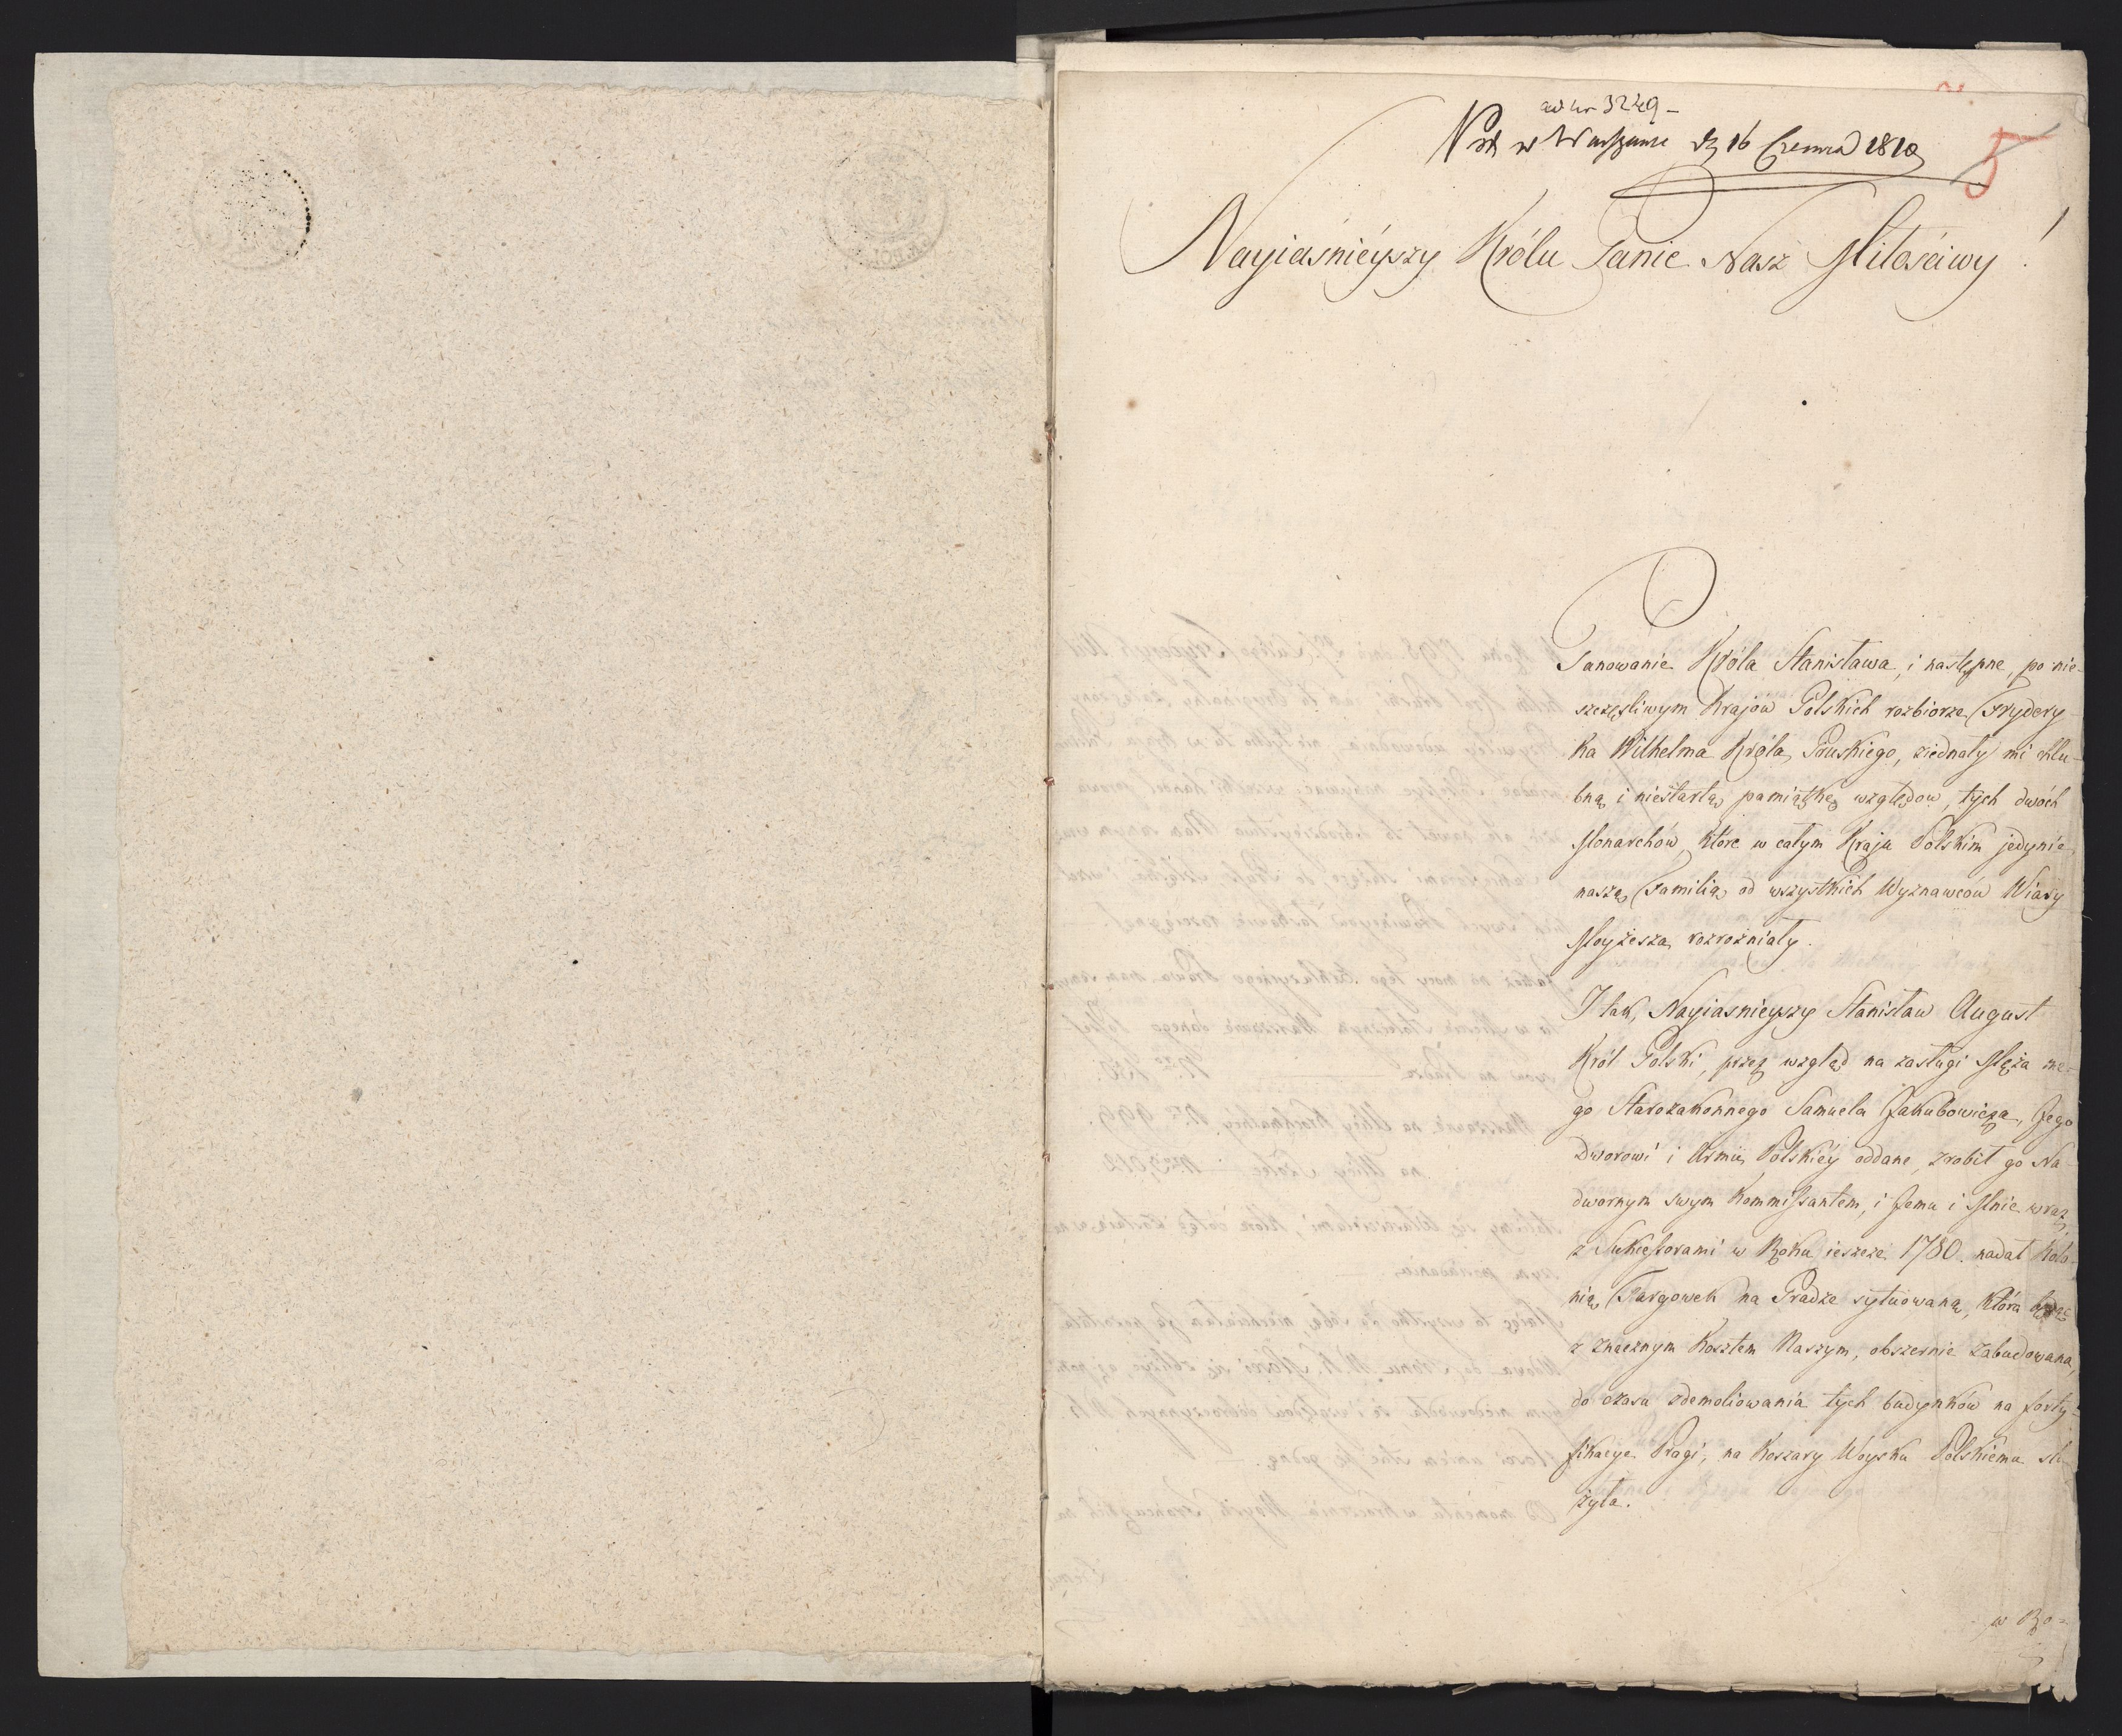 ad nr 3249 –
w Warszawie d 16 Czerwca 1810
5
Nayiaśnieyszy Królu Panie Nasz Miłościwy!
Panowanie Króla Stanisława, i następne, po nie-
szczęśliwym Krajów Polskich rozbiorze Frydery-
ka Wilhelma Króla Pruskiego, ziednały mi chlu-
bną i niestartą pamiątkę względow, tych dwóch
Monarchów, które w całym Kraju Polskim jedynie
naszą Familią od wszystkich Wyznawców Wiary
Moyżesza rozrożniały.
I tak, Nayiasnieyszy Stanisław August
Król Polski, przez wzgląd na zasługi Męża me-
go Starozakonnego Samuela Jakubowicza, Jego
Dworowi i Armii Polskiéy oddane, zrobił go Na-
dwornym swym Kommissantem, i Jemu i Mnie wraz
z Sukcessorami w Roku ieszcze 1780. nadał Kolo-
nią Targowek na Pradze sytuowaną, która będąc
z znacznym Kosztem Naszym, obszernie zabudowana,
do czasu zdemoliowania tych budynków na forty-
fikacye Pragi, na Koszary Woysku Polskiemu słu-
żyła.
w Ro-